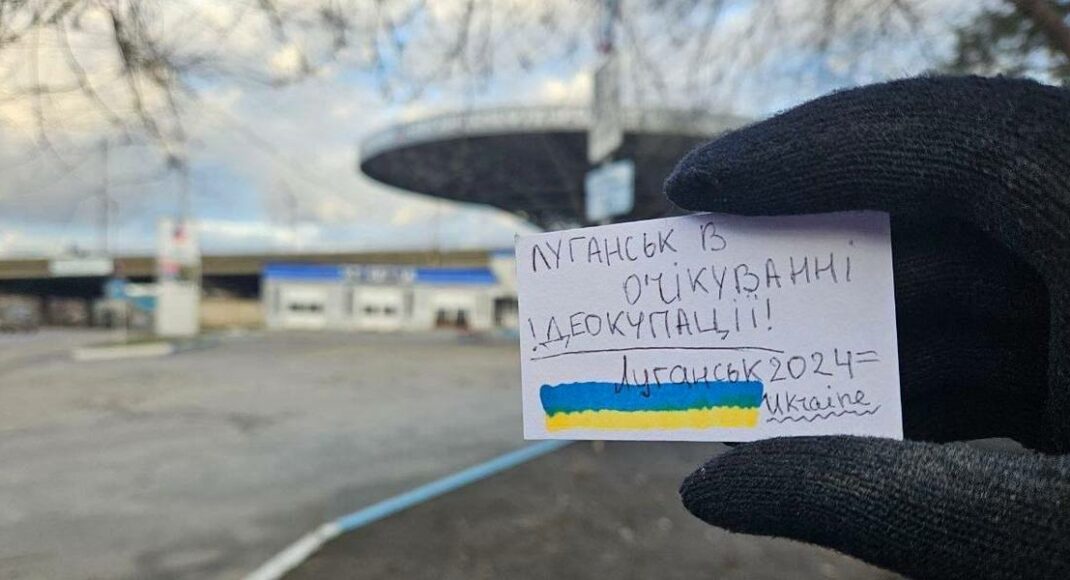 ЛУГАНСЬК В
ОЧІКУВАННІ
!ДЕОКУПАЦІЇ!
Луганськ 2024=
Ukraine